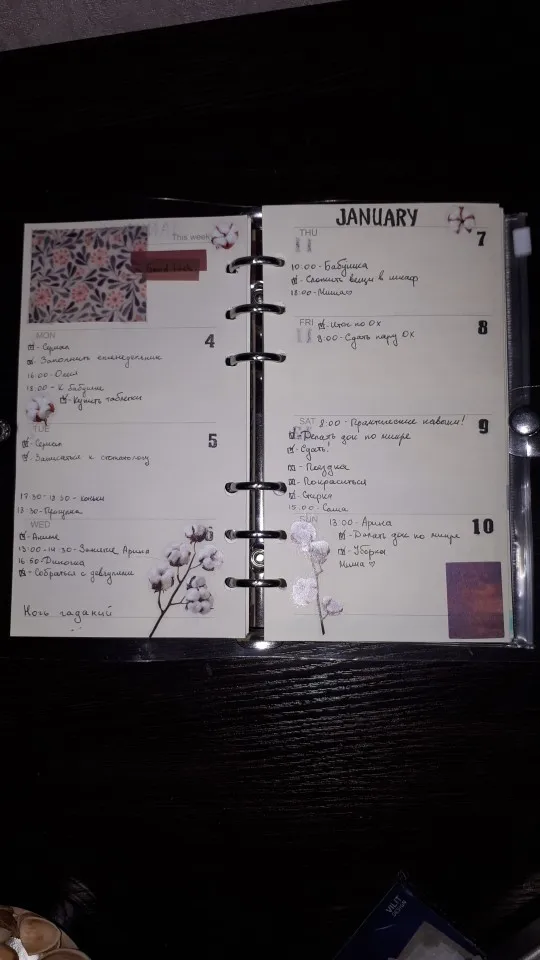 This week
Good Luck
MON 4
- Сериал
- Заполнить еженедельник
16:00 - Олег
18:00 - К бабушке
- Купить таблетки
TUE 5
- Сериал
- Записаться к стоматологу
17:30 - 18:30 - коньки
18:30 - Прогулка
WED 6
- Аниме
13:00 - 14:30 - Занятие Арина
16:50 -
- Собраться с девчулями
Ночь гаданий
JANUARY
THU 7
10:00 - Бабушка
- Сложить вещи в шкаф
18:00 - Миша
FRI 8
- Итог по ОХ
8:00 - Сдать пару ОХ
SAT 9
8:00 - Практические навыки!
- Делать док по микре
- Сдать!
- Поездка
- Покраситься
- Стирка
15:00 - Саша
SUN 10
13:00 - Арина
- Делать док по микре
- Уборка
Миша ♡
VILIT